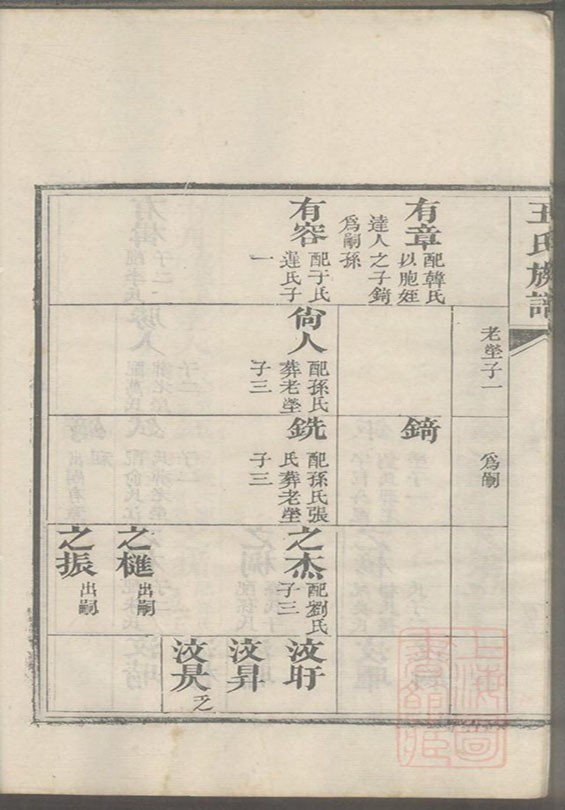 王氏族譜
老塋子一
爲嗣
有章
配韓氏
以胞姪
達人之子錡
爲嗣孫
有容
配于氏
子
一
尙人
配孫氏
葬老塋
子三
錡
銑
配孫氏張
氏葬老塋
子三
之杰
配劉氏
子三
之樾
出嗣
之振
出嗣
汶盱
汶昇
汶昃
乏
上海圖
書館藏